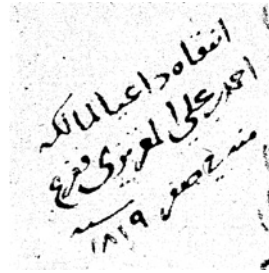 انتقاه داعيا لمالكه
احمد بن علي المقريزي وفرغ
منه في صفر
سنة ٨١٩